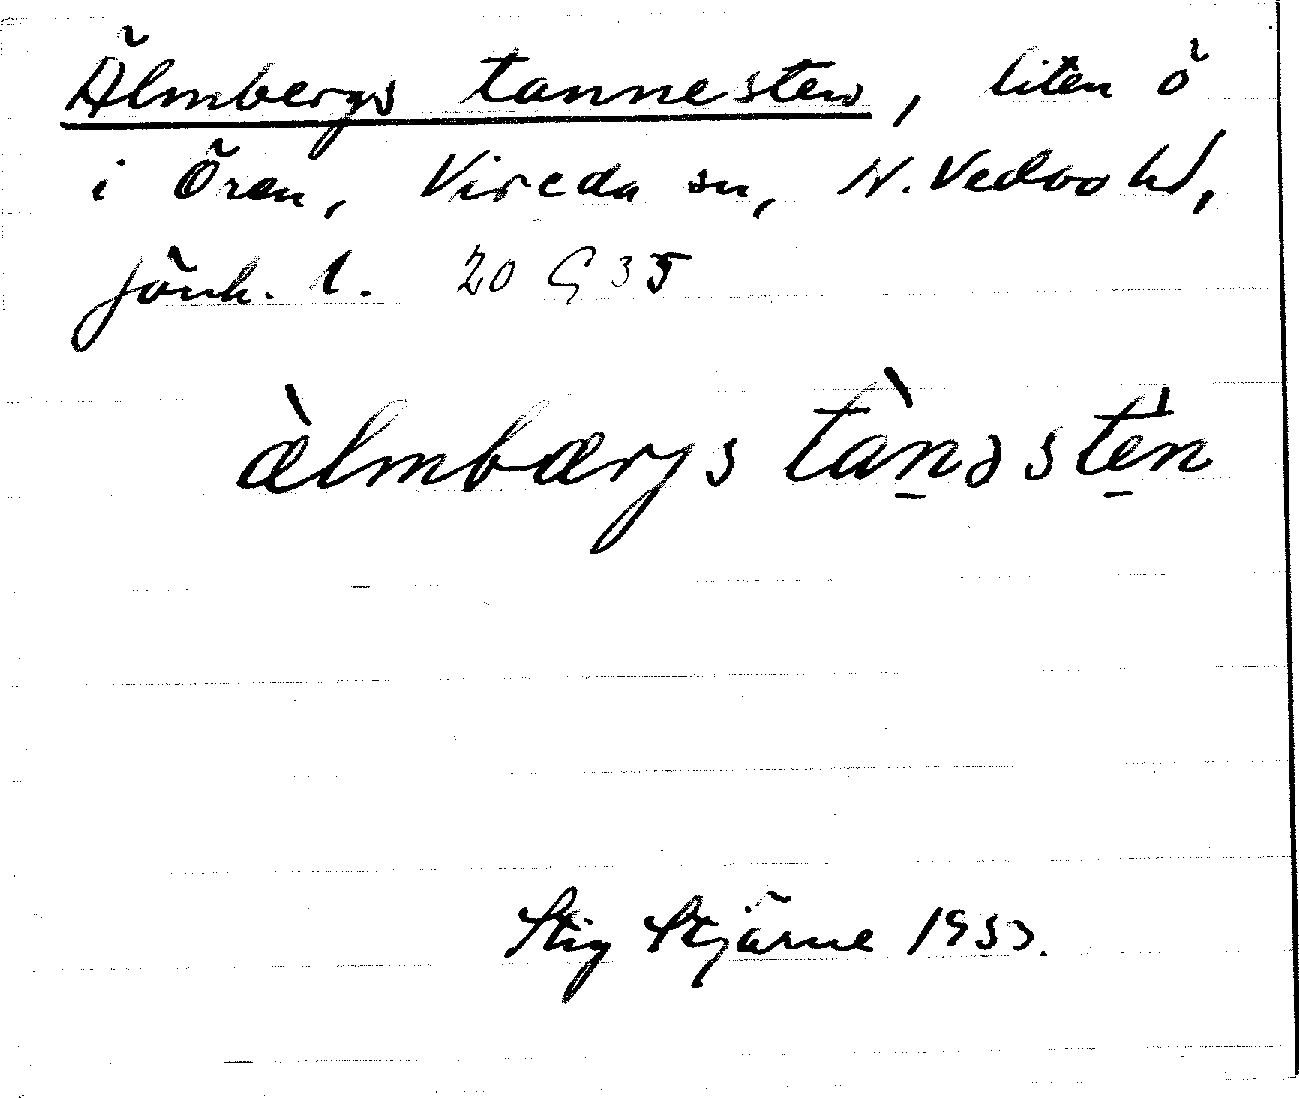 Älmbergs tannesten, liten ö
i Ören, Vireda sn, N. Vedbo hd,
Jönk. l. 20 G 35
æ̀lmbærgs tàn̠əstén̠
Stig Stjärne 1933.